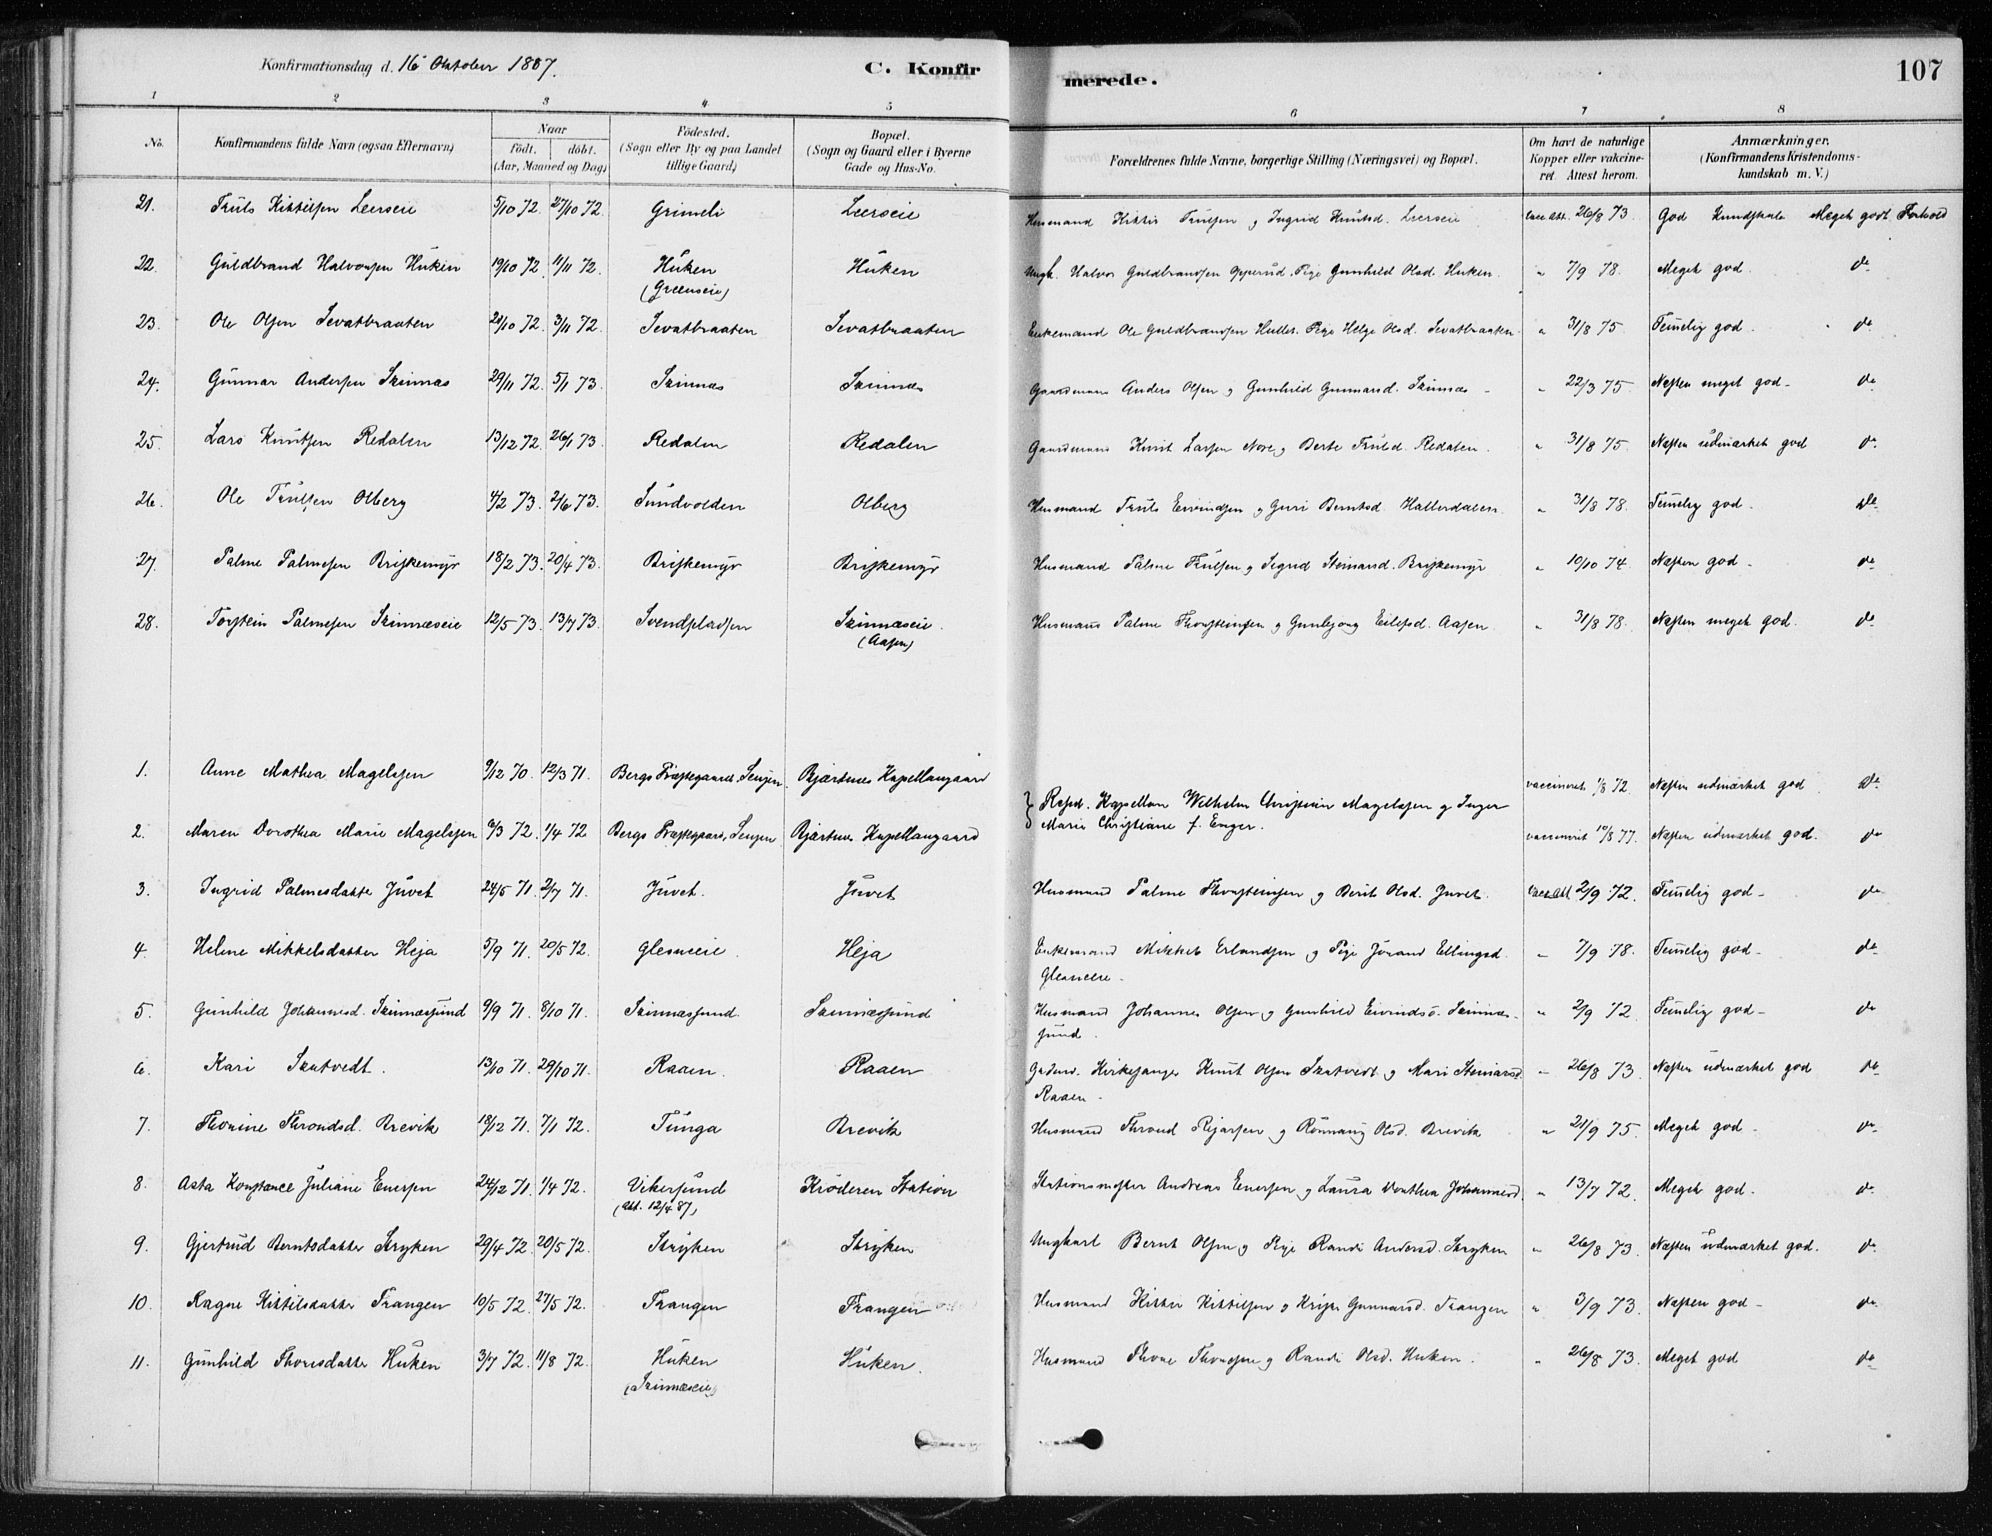 Konfirmationsdag d. 16 Oktober 1887.
C. Konfir
merede.
107
1 2 3 4 5 6 7 8
No. Konfirmandens fulde Navn (ogsaa Efternavn) Naar født. døbt. (Aar, Maaned og Dag) Fødested. (Sogn eller By og paa Landet tillige Gaard) Bopæl. (Sogn og Gaard eller i Byerne Gade og Hus-No. Forældrenes fulde Navne, borgerlige Stilling (Næringsvei) og Bopæl. Om havt de naturlige Kopper eller vakcineret. Attest herom. Anmærkninger. (Konfirmandens Kristendomskundskab m. V.)
21. Truls Kittilsen Leerseie 5/10 72. 27/10 72. Grimeli Leerseie Husmand Kittil Trulsen og Ingrid Knutsd. Leerseie Vacc. Att. 26/8 73. God Kundskab Meget godt Forhold
22. Guldbrand Halvorsen Huken 19/10 72. 11/11 72. Huken Huken Ungk. Halvor Guldbrandsen Opperud. Pige Gunhild Olsd. Huken. " 7/9 78. Meget god. do
(Greenseie)
23. Ole Olsen Sevatbraaten 20/10 72. 3/11 72. Sevatbraaten Sevatbraaten Enkemand Ole Guldbrandsen Pige Helge Olsd. Sevatbraaten " 31/8 75. Temelig god. do
24. Gunnar Andersen Skinnes 29/11 72. 5/1 73. Skinnes Skinnes Gaardmand Anders Olsen og Gunhild Gunnarsd. Skinnæs " 22/3 75. Næsten meget god do
25. Lars Knutsen Redalen 13/12 72. 26/1 73. Redalen Redalen Gaardmand Knut Larsen Nore og Berte Trulsd. Redalen. " 31/8 75. Næsten udmærket god do
26. Ole Trulsen Olberg 4/2 73. 2/6 73. Sundvolden Olberg Husmand Truls Eivindsen og Guri Berntsd. Hallerdalen. " 31/8 78. Temelig god. do
27. Palme Palmesen Briskemyr 18/2 73. 20/4 73. Briskemyr Briskemyr Husmand Palme Trulsen og Sigrid Steinarsd. Briskemyr " 10/10 74. Næsten god do
28. Torstein Palmesen Skinnæseie 12/5 73. 13/7 73. Svendpladsen Skinnæseie. Husmand Palme Thorsteinsen og Gunbjørg Eilefsd. Aasen. " 31/8 78. Næsten meget god. do
(Aasen)
1. Anne Mathea Magelssen 9/12 70. 12/3 71. Bergs Præstegaard, Senjen Bjærtnes Kapellangaard vaccineret 1/8 72. Næsten udmærket god do
Resid. Kapellan Wilhelm Christian Magelssen og Inger
Marie Christiane f. Enger.
2. Maren Dorothea Marie Magelssen 6/3 72. 1/4 72 Bergs Præstegaard, Senjen Bjærtnes Kapellangaard vaccineret 10/8 77. Næsten udmærket god. do
3. Ingrid Palmesdatte Juvet 24/5 71. 2/7 71. Juvet. Juvet Husmand Palme Thorsteinsen og Berit Olsd. Juvet. Vacc. Att. 2/9 72. Temelig god do
4. Helene Mikkelsdatter Heja 5/9 71. 20/5 72. Glesneeie. Heja Enkemand Mikkel Erlandsen og Pige Jørand Ellingsd. " 7/9 78. Temelig god do
Glesneeie.
5. Gunhild Johannesd. Skinnæssund 9/9 71. 8/10 71. Skinnæssund. Skinnæssund Husmand Johannes Olsen og Gunhild Eivindsd. Skinnæs- " 2/9 72. Temelig god do
sund.
6. Kari Skatvedt. 13/10 71. 29/10 71. Raaen. Raaen Kirkesanger Knut Olsen Skatvedt og Mari Steinarsd. " 26/8 73. Næsten udmærket god do
Raaen.
7. Thorine Throndsd. Brevik 18/12 71. 7/1 72. Tunga Brevik Husmand Thrond og Rønnaug Olsd. Brevik " 21/9 75. Meget god do
8. Asta Konstance Juliane Enersen 24/12 71. 1/4 72. Vikersund Krøderen Station Stationsmester Andreas Enersen og Laura Dorthea Johannesd. " 13/7 72. Meget god. do
(Att. 12/4 87)
9. Gjertrud Berntsdatter Stryken 29/4 72. 20/5 72. Stryken Stryken Ungkarl Bernt Olsen og Pige Randi Andersd. Stryken " 26/8 73. Næsten udmærket god. do
10. Ragne Kittilsdatter Trangen 10/5 72. 27/5 72. Trangen Trangen Husmand Kittil Kittilsen og Kristi Gunnarsd. Trangen " 3/9 73. Næsten god do
11. Gunhild Thoresdatter Huken 3/7 72. 11/8 72. Huken Huken. Husmand Thore Thoresen og Randi Olsd. Huken. " 26/8 73. Meget god do
(Skinnæseie)